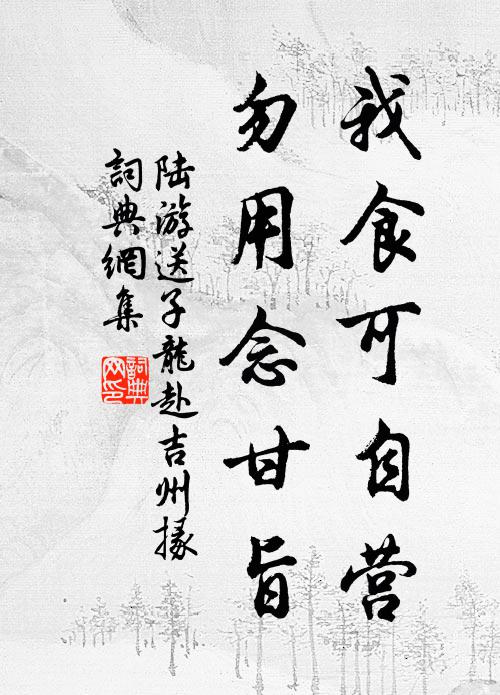 我食可自营
勿用念甘旨
陆游送子龍赴吉州掾
詞典網集
詞典网印